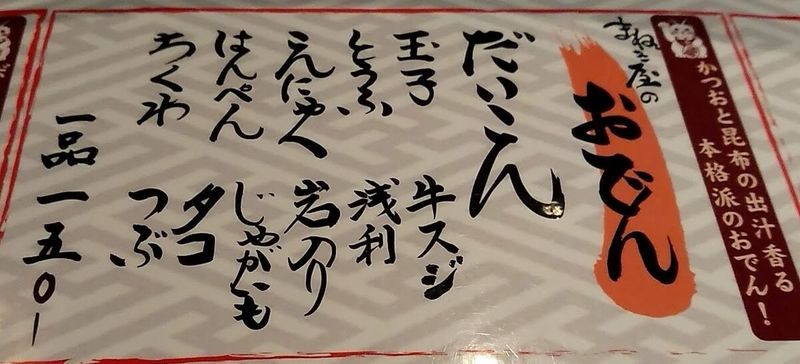 かつおと昆布の出汁香る
本格派のおでん！
まねき屋の
おでん
だいこん
玉子
牛スジ
とうふ
浅利
こんにゃく
岩のり
はんぺん
じゃがいも
ちくわ
タコ
つぶ
一品一五〇-